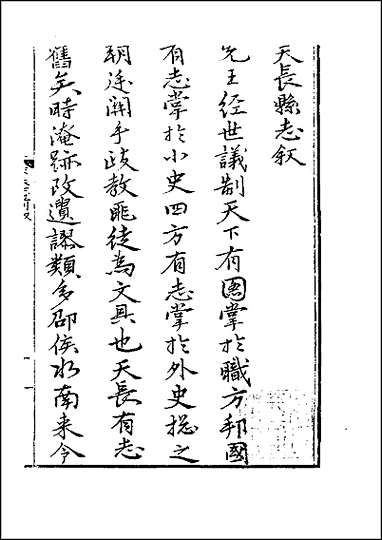 天長縣志叙
先王經世議制天下有圖掌扵職方邦國
有志掌扵小史四方有志掌扵外史揔之
朝廷關乎政教匪徒為文具也天長有志
舊矣時淹跡改遺謬類多邵侯水南来令